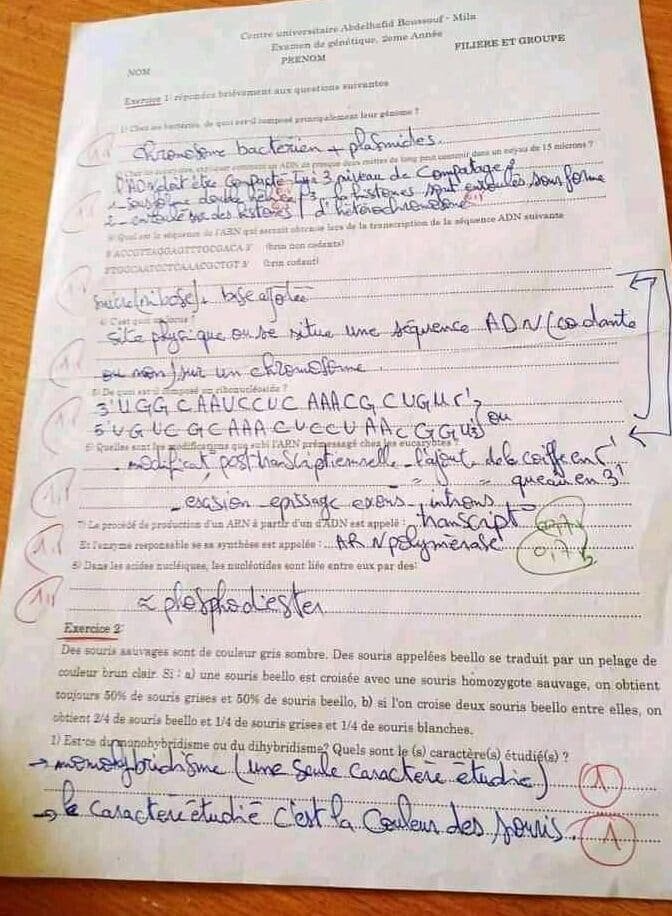 Centre universitaire Abdelhafid Boussouf - Mila
Examen de génétique, 2eme Année
NOM PRENOM FILIERE ET GROUPE
Exercice 1: répondées brièvement aux questions suivantes
1) Chez les bactéries, de quoi est-il composé principalement leur génome ?
chromosome bactérien + plasmides.
un ADN de presque deux mètres de long peut contenir dans un noyau de 15 microns ?
l'ADN doit être compacté 3 niveau de compatage
1- sous forme double hélice / 3- histones sont entoulés sous forme
2- entoulé sur des histones / d'hétérochromosome
3) Quel est la séquence de l'ARN qui serrait obtenue lors de la transcription de la séquence ADN suivante
5'ACCGTTAGGAGTTTGCGACA 3' (brin non codante)
3'TGGCAATCCTCAAACGCTGT 5' (brin codant)
sucre (ribose) + base azotée
4) C'est quoi un locus ?
site physique ou se situe une séquence ADN (codante
ou non) sur un chromosome
5) De quoi est-il composé un ribonucléoside ?
3' UGG CAAUCCUC AAACG CUGU 5'
5' UGUC GCAAA CUCCUAAC GGU 3' ou
6) Quelles sont les modifications que subi l'ARN prémessagé chez les eucaryotes ?
- modificat° posttranscriptiennelle - l'ajout de la coiffe en 5'
= = = queau en 3'
- exasion - epissage exons - introns
7) Le procédé de production d'un ARN à partir d'un d'ADN est appelé : transcript°
Et l'enzyme responsable se sa synthèse est appelée :... ARN polymérase
8) Dans les acides nucléiques, les nucléotides sont liés entre eux par des:
phosphodiester
Exercice 2:
Des souris sauvages sont de couleur gris sombre. Des souris appelées beello se traduit par un pelage de
couleur brun clair. Si : a) une souris beello est croisée avec une souris homozygote sauvage, on obtient
toujours 50% de souris grises et 50% de souris beello, b) si l'on croise deux souris beello entre elles, on
obtient 2/4 de souris beello et 1/4 de souris grises et 1/4 de souris blanches.
1) Est-ce du monohybridisme ou du dihybridisme? Quels sont le (s) caractère(s) étudié(s) ?
→ monohybridisme (une seule caractère étudié) 1
→ le caractère étudié c'est la couleur des souris. 1